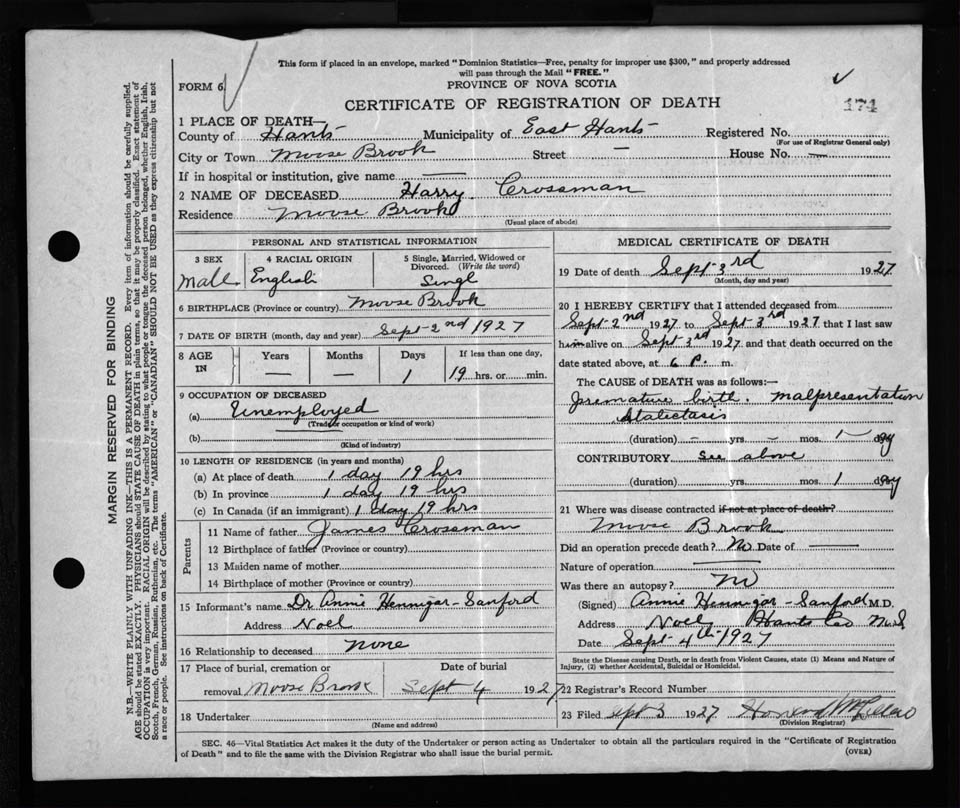 This form if placed in an envelope, marked "Dominion Statistics—Free, penalty for improper use $300," and properly addressed
will pass through the Mail "FREE."
FORM 6.
PROVINCE OF NOVA SCOTIA
CERTIFICATE OF REGISTRATION OF DEATH
174
1 PLACE OF DEATH—
County of Hants Municipality of East Hants Registered No.
(For use of Registrar General only)
City or Town Moose Brook Street — House No. —
If in hospital or institution, give name —
2 NAME OF DECEASED Harry Crossman
Residence Moose Brook
(Usual place of abode)
PERSONAL AND STATISTICAL INFORMATION
3 SEX 4 RACIAL ORIGIN 5 Single, Married, Widowed or
Divorced. (Write the word)
Male English Singl
6 BIRTHPLACE (Province or country) Moose Brook
7 DATE OF BIRTH (month, day and year) Sept 2nd 1927
8 AGE IN Years Months Days If less than one day,
— — 1 19 hrs. or min.
9 OCCUPATION OF DECEASED
(a) Unemployed
(Trade or occupation or kind of work)
(b)
(Kind of industry)
10 LENGTH OF RESIDENCE (in years and months)
(a) At place of death 1 day 19 hrs
(b) In province 1 day 19 hrs
(c) In Canada (if an immigrant) 1 day 19 hrs
Parents
11 Name of father James Crossman
12 Birthplace of father (Province or country)
13 Maiden name of mother
14 Birthplace of mother (Province or country)
15 Informant's name Dr Annie Hennigar-Sanford
Address Noel
16 Relationship to deceased none
17 Place of burial, cremation or Date of burial
removal Moose Brook Sept 4 1927
18 Undertaker
(Name and address)
MEDICAL CERTIFICATE OF DEATH
19 Date of death Sept 3rd 1927
(Month, day and year)
20 I HEREBY CERTIFY that I attended deceased from
Sept 2nd 1927 to Sept 3rd 1927 that I last saw
him alive on Sept 3rd 1927 and that death occurred on the
date stated above, at 6 P. m.
The CAUSE of DEATH was as follows:—
Premature birth. Malpresentation
(duration) - yrs. - mos. 1 day
CONTRIBUTORY See above
(duration) yrs. mos. 1 day
21 Where was disease contracted if not at place of death?
Moose Brook
Did an operation precede death? No Date of —
Nature of operation —
Was there an autopsy? No
(Signed) Annie Hennigar-Sanford M.D.
Address Noel Hants Co N.S
Date Sept 4th 1927
State the Disease causing Death, or in death from Violent Causes, state (1) Means and Nature of
Injury, (2) whether Accidental, Suicidal or Homicidal.
22 Registrar's Record Number
23 Filed Sept 3 1927 Howard
(Division Registrar)
SEC. 46—Vital Statistics Act makes it the duty of the Undertaker or person acting as Undertaker to obtain all the particulars required in the "Certificate of Registration
of Death" and to file the same with the Division Registrar who shall issue the burial permit.
(OVER)
MARGIN RESERVED FOR BINDING
N.B.—WRITE PLAINLY WITH UNFADING INK—THIS IS A PERMANENT RECORD. Every item of information should be carefully supplied.
AGE should be stated EXACTLY. PHYSICIANS should STATE CAUSE OF DEATH in plain terms, so that it may be properly classified. Exact statement of
OCCUPATION is very important. RACIAL ORIGIN will be described by stating to what people or tongue the deceased person belonged, whether English, Irish,
Scotch, French, German, Russian, Ruthenian, etc. The terms "AMERICAN" or "CANADIAN" SHOULD NOT BE USED as they express citizenship but not
a race or people. See instructions on back of Certificate.